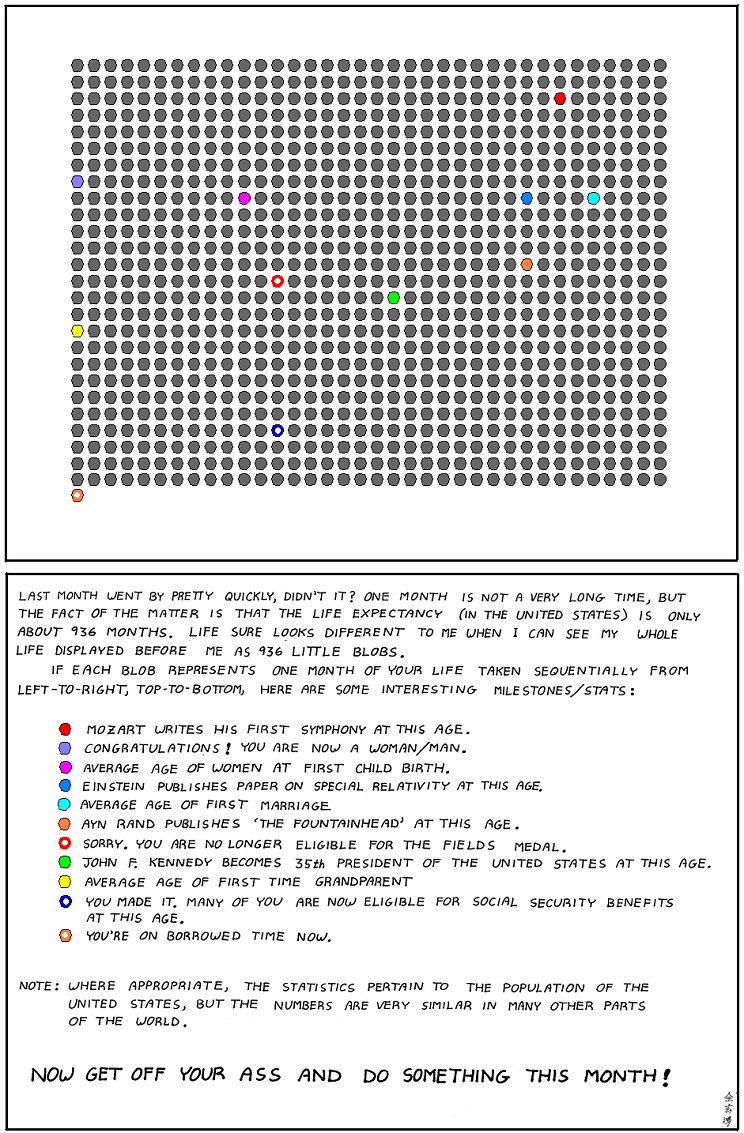 LAST MONTH WENT BY PRETTY QUICKLY, DIDN'T IT? ONE MONTH IS NOT A VERY LONG TIME, BUT
THE FACT OF THE MATTER IS THAT THE LIFE EXPECTANCY (IN THE UNITED STATES) IS ONLY
ABOUT 936 MONTHS. LIFE SURE LOOKS DIFFERENT TO ME WHEN I CAN SEE MY WHOLE
LIFE DISPLAYED BEFORE ME AS 936 LITTLE BLOBS.
IF EACH BLOB REPRESENTS ONE MONTH OF YOUR LIFE TAKEN SEQUENTIALLY FROM
LEFT-TO-RIGHT, TOP-TO-BOTTOM, HERE ARE SOME INTERESTING MILESTONES/STATS:
MOZART WRITES HIS FIRST SYMPHONY AT THIS AGE.
CONGRATULATIONS! YOU ARE NOW A WOMAN/MAN.
AVERAGE AGE OF WOMEN AT FIRST CHILD BIRTH.
EINSTEIN PUBLISHES PAPER ON SPECIAL RELATIVITY AT THIS AGE.
AVERAGE AGE OF FIRST MARRIAGE
AYN RAND PUBLISHES 'THE FOUNTAINHEAD' AT THIS AGE.
SORRY. YOU ARE NO LONGER ELIGIBLE FOR THE FIELDS MEDAL.
JOHN F. KENNEDY BECOMES 35th PRESIDENT OF THE UNITED STATES AT THIS AGE.
AVERAGE AGE OF FIRST TIME GRANDPARENT
YOU MADE IT. MANY OF YOU ARE NOW ELIGIBLE FOR SOCIAL SECURITY BENEFITS
AT THIS AGE.
YOU'RE ON BORROWED TIME NOW.
NOTE: WHERE APPROPRIATE, THE STATISTICS PERTAIN TO THE POPULATION OF THE
UNITED STATES, BUT THE NUMBERS ARE VERY SIMILAR IN MANY OTHER PARTS
OF THE WORLD.
NOW GET OFF YOUR ASS AND DO SOMETHING THIS MONTH!